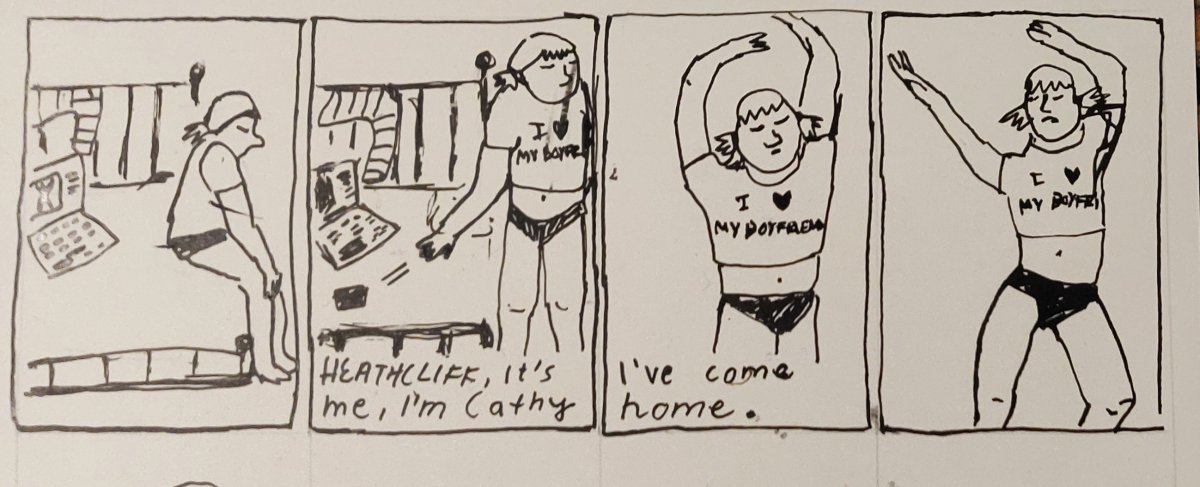 I ♥
MY BOYFE
HEATHCLIFF, it's
me, I'm Cathy
I ♥
MY BOYFRIEND
I've come
home.
I ♥
MY BOYFRI